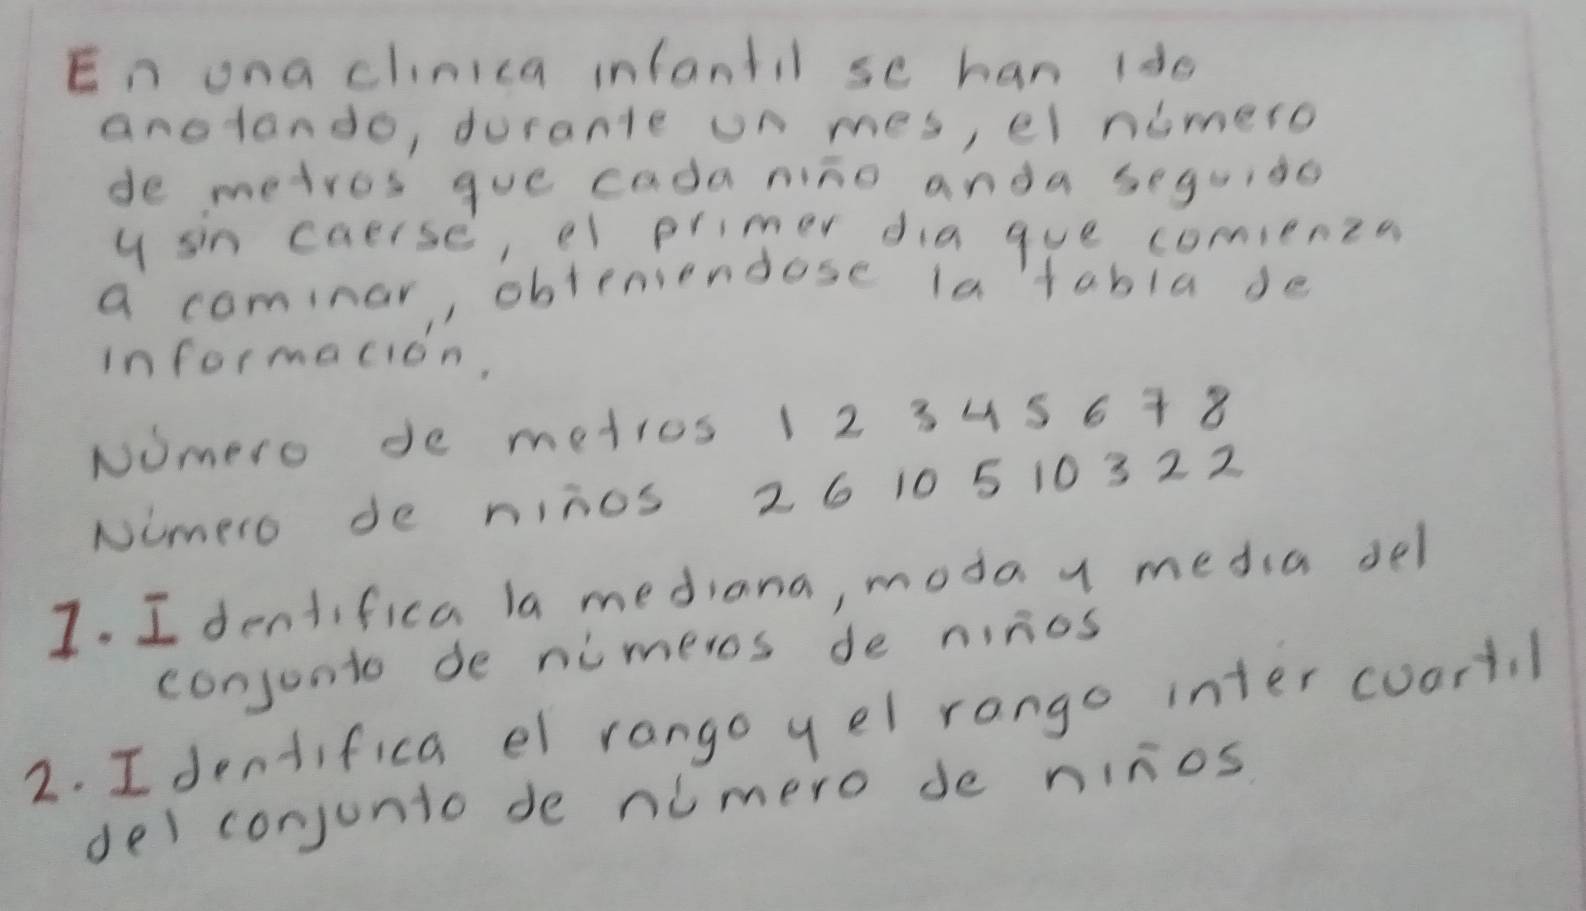 En una clinica infantil se han ido
anotando, durante un mes, el número
de metros que cada niño anda seguido
y sin caerse, el primer dia que comienza
a caminar, obteniendose la tabla de
información.
Número de metros 1 2 3 4 5 6 7 8
Número de niños 2 6 10 5 10 3 2 2
1. Identifica la mediana, moda y media del
conjunto de números de niños
2. Identifica el rango y el rango inter cuartil
del conjunto de número de niños.